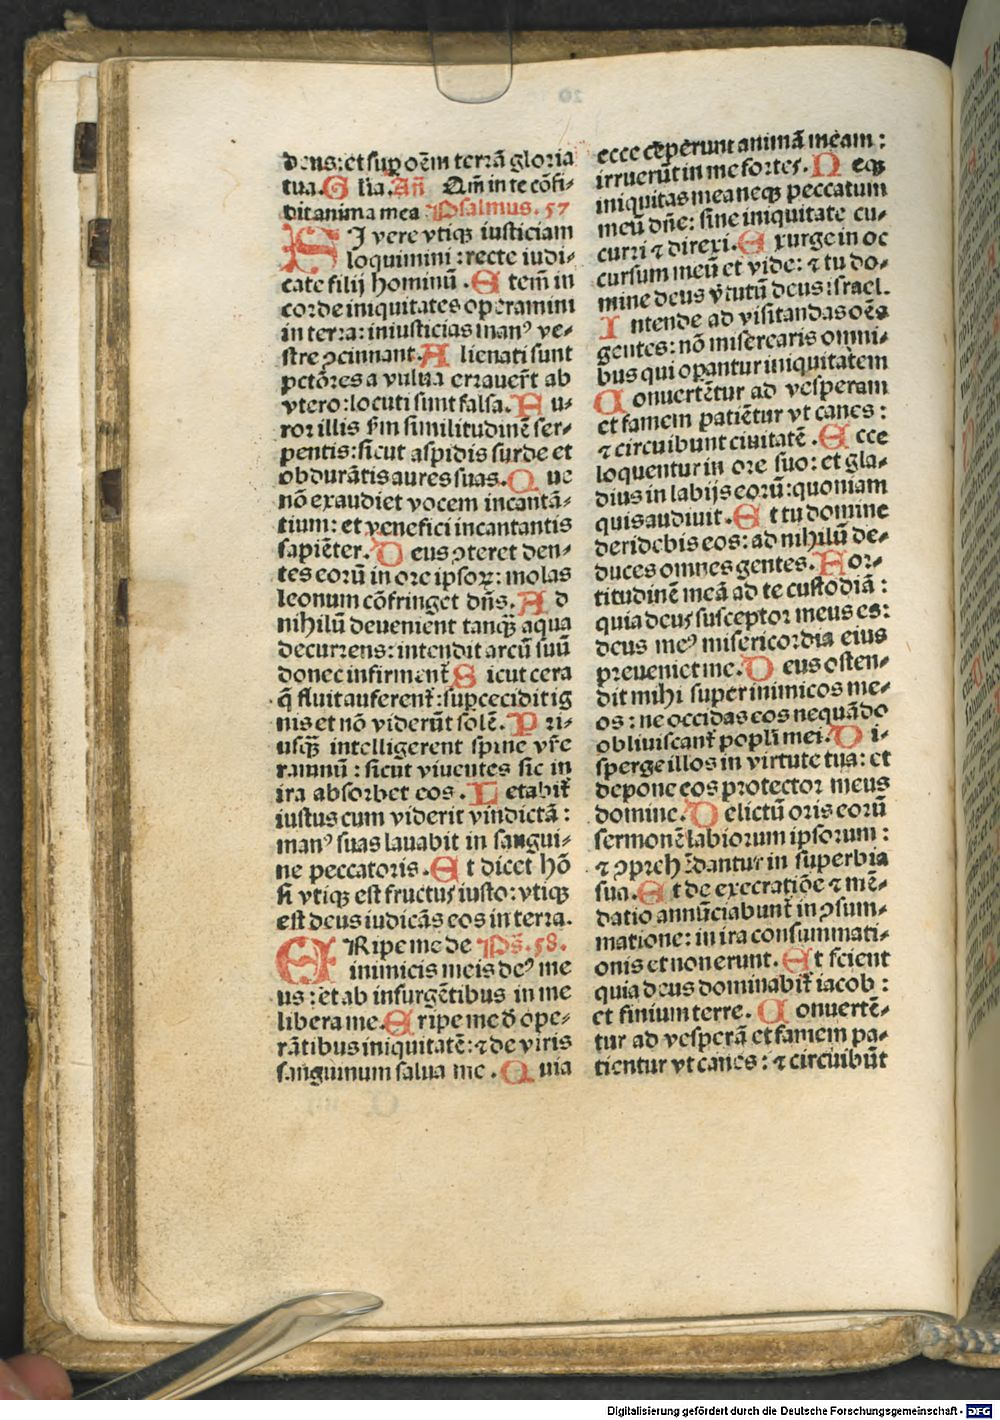 deus: et sup oẽm terrã gloria
tua. G lia. Añ Qm̃ in te cõfi-
dit anima mea Psalmus. 57
SI vere vtiqꝫ iusticiam
loquimini : recte iudi-
cate filij hominũ . E tem̃ in
corde iniquitates operamini
in terra: iniusticias manꝰ ve-
stre ꝯcinnant. A lienati sunt
pctõres a vulua erraueñt ab
vtero: locuti sunt falsa. F u-
ror illis ẜm similitudinẽ ser-
pentis: sicut aspidis surde et
obdurãtis aures suas. Q ue
nõ exaudiet vocem incantã-
tium: et venefici incantantis
sapiẽter. D eus ꝯteret den-
tes eorũ in ore ipsoꝝ: molas
leonum cõfringet dñs. A d
nihilũ deuenient tanqꝫ̃ aqua
decurrens: intendit arcũ suũ
donec infirment̃ S icut cera
q̃ fluit auferent̃ : supcecidit ig
nis et nõ viderũt solẽ. P ri-
usqꝫ̃ intelligerent spine vr̃e
ramnũ : sicut viuentes sic in
ira absorbet eos . L etabit̃
iustus cum viderit vindictã :
manꝰ suas lauabit in sangui-
ne peccatoris . E t dicet hõ
si vtiqꝫ est fructus iusto: vtiqꝫ
est deus iudicãs eos in terra.
ERipe me de Ps̃. 58.
inimicis meis deꝰ me
us : et ab insurgẽtibus in me
libera me. E ripe me ð ope-
rãtibus iniquitatẽ: ⁊ de viris
sanguinum salua me . Q uia
ecce ceperunt animã meam :
irruerũt in me fortes. N eqꝫ
iniquitas mea neqꝫ peccatum
meũ dñe: sine iniquitate cu-
curri ⁊ direxi. E xurge in oc
cursum meũ et vide: ⁊ tu do-
mine deus ṽtutũ deus israel.
I ntende ad visitandas oẽs
gentes: nõ miserearis omni-
bus qui opantur iniquitatem
C onuertẽtur ad vesperam
et famem patiẽtur vt canes :
⁊ circuibunt ciuitatẽ . E cce
loquentur in ore suo: et gla-
dius in labijs eorũ: quoniam
quis audiuit . E t tu domine
deridebis eos: ad nihilũ de-
duces omnes gentes. F or-
titudinẽ meã ad te custodiã :
quia deus susceptor meus es:
deus meꝰ misericordia eius
preueniet me. D eus osten-
dit mihi super inimicos me-
os : ne occidas eos nequãdo
obliuiscant̃ popli mei. D i-
sperge illos in virtute tua: et
depone eos protector meus
domine. D elictũ oris eorũ
sermonẽ labiorum ipsorum :
⁊ ꝯprehẽdantur in superbia
sua. E t de execratiõe ⁊ mẽ-
datio annũciabunt̃ in ꝯsum-
matione: in ira consummati-
onis et non erunt. E t scient
quia deus dominabit̃ iacob :
et finium terre. C onuertẽ-
tur ad vesperã et famem pa-
tientur vt canes : ⁊ circuibũt
Digitalisierung gefördert durch die Deutsche Forschungsgemeinschaft - DFG